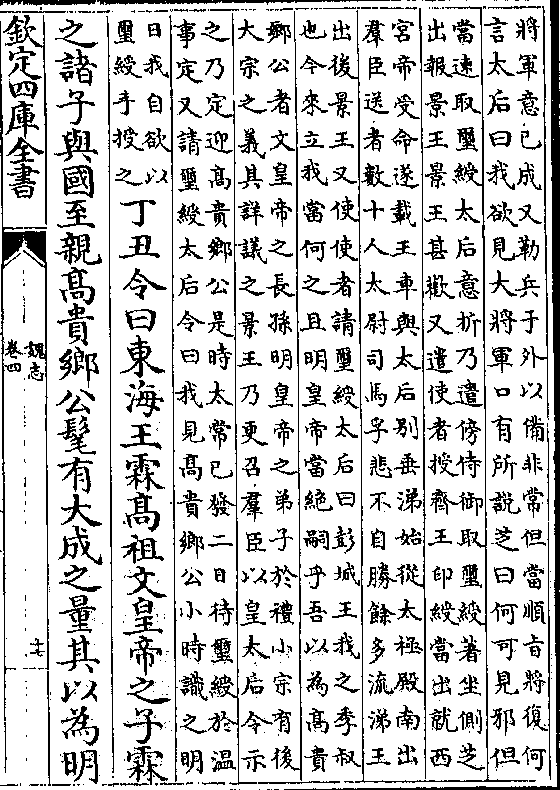 將軍意已成又勒兵于外以備非常但當順旨將復何
言太后曰我欲見大將軍口有所說芝曰何可見邪但
當速取璽綬太后意折乃遣傍侍御取璽綬著坐側芝
出報景王景王甚歡又遣使者授齊王印綬當出就西
宮帝受命遂載王車與太后別垂涕始從太極殿南出
羣臣送者數十人太尉司馬孚悲不自勝餘多流涕王
出後景王又使使者請璽綬太后曰彭城王我之季叔
也今來立我當何之且明皇帝當絕嗣乎吾以為髙貴
鄉公者文皇帝之長孫明皇帝之弟子於禮小宗有後
大宗之義其詳議之景王乃更召羣臣以皇太后令示
之乃定迎髙貴鄉公是時太常已發二日待璽綬於溫
事定又請璽綬太后令曰我見髙貴鄉公小時識之明
日我自欲以
璽綬手授之
丁丑令曰東海王霖髙祖文皇帝之子霖
之諸子與國至親髙貴鄉公髦有大成之量其以為明
欽定四庫全書
魏志
卷四
十七